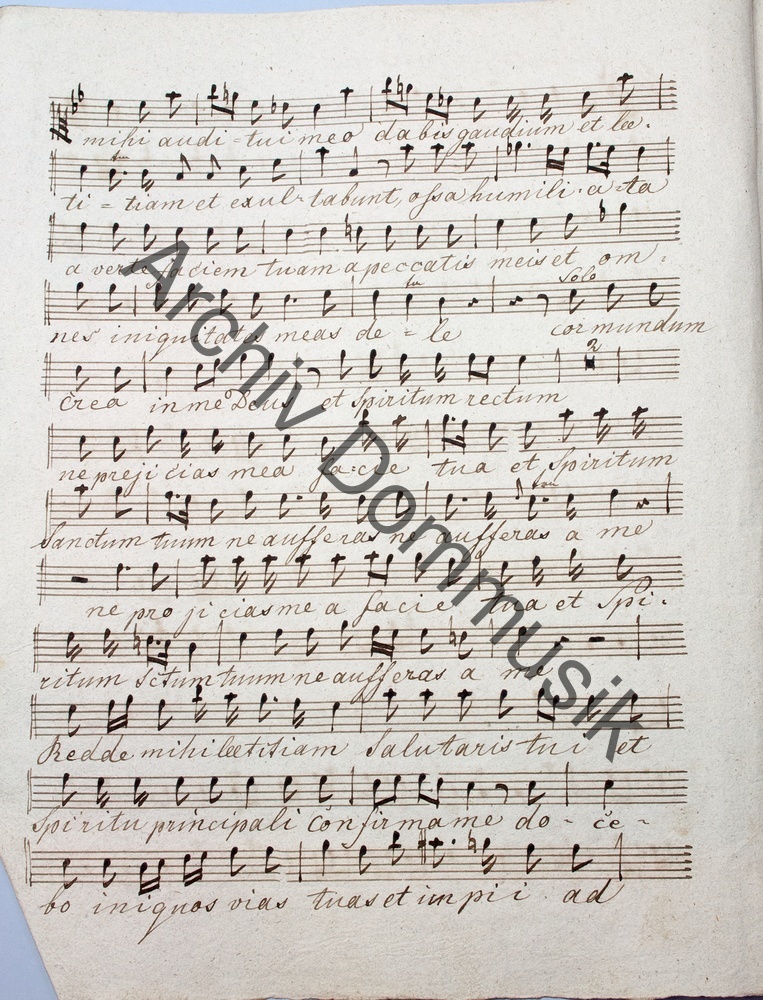 mihi audi-tui meo dabis gaudium et læ-
ti=tiam et exul-tabunt, ossa humili-a-ta
a verte faciem tuam a peccatis meis et om-
Solo
nes iniquitates meas de=le cor mundum
2
Crea in me Deus et Spiritum rectum
ne prejicias mea fa-cie tua et Spiritum
Sanctum tuum ne aufferas ne aufferas a me
ne projicias me a facie tua et Spi-
ritum Sctum tuum ne aufferas a me
Redde mihi lætitiam Salutaris tui et
Spiritu principali Confirma me do-ce-
bo iniquos vias tuas et impii ad
Archiv Dommusik